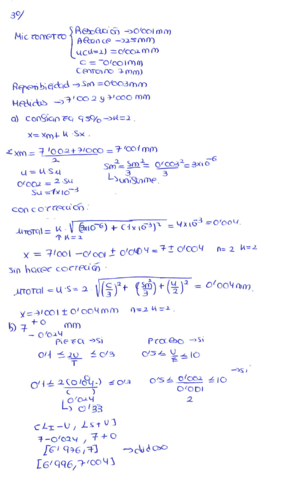 3º/
Micrometro { Resolución → 0'001 mm
Alcance → 25 mm
u(k=2) = 0'002 mm
C = -0'001 mm
(entorno 7 mm)
Repetibilidad → Sm = 0'003 mm
Medidas → 7'002 y 7'000 mm
a) confianza 95% → k=2.
x = xm ± k · Sx.
xm = 7'002 + 7'000 / 2 = 7'001 mm
u = k Su
Sm² = Sm²/3 = 0'003²/3 = 3x10⁻⁶
0'002 = 2 Su
↳ uniforme.
Su = 1x10⁻³
con corrección:
utotal = k · √(3x10⁻⁶) + (1x10⁻³)² = 4x10⁻³ = 0'004.
↑ k=2
x = 7'001 - 0'001 ± 0'004 = 7 ± 0'004 n=2 k=2
sin hacer corrección.
utotal = k·S = 2 √(C/3)² + (Sm²/3) + (u/2)² = 0'004 mm.
x = 7'001 ± 0'004 mm n=2 k=2.
b) 7 +0 mm
- 0'024
Pieza → si Proceso → si
0'1 ≤ 2U/T ≤ 0'3 0'5 ≤ U/E ≤ 10
→ si
0'1 ≤ 2(0'04) ≤ 0'3 0'5 ≤ 0'002 ≤ 10
0'024 0'001
↳ 0'33 2
[LI-U, LS+U]
7-0'024, 7+0
[6'976, 7] → dudoso
[6'976, 7'004]